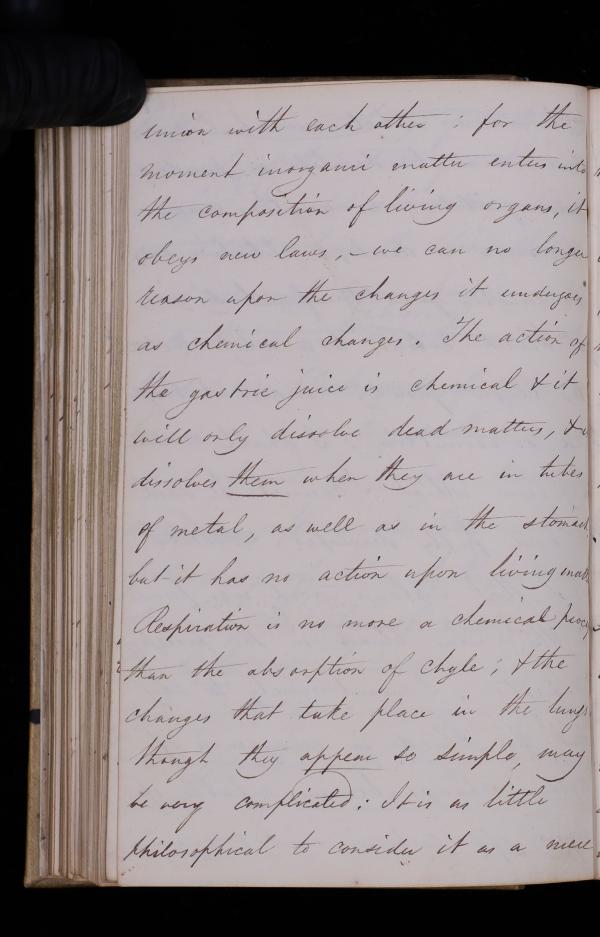 union with each other : for the
moment inorganic matter enters into
the composition of living organs, it
obeys new laws, – we can no longer
reason upon the changes it undergoes
as chemical changes. The action of
the gastric juice is chemical & it
will only dissolve dead matters, &
dissolves them when they are in tubes
of metal, as well as in the stomach
but it has no action upon living
Respiration is no more a chemical
than the absorption of chyle ; & the
changes that take place in the lungs
though they appear so simple, may
be very complicated: It is as little
philosophical to consider it as a mere